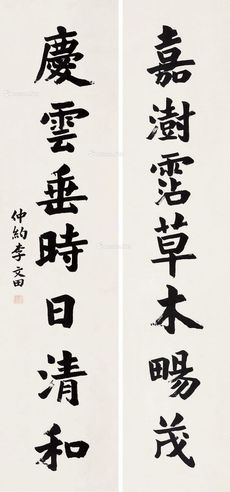 嘉澍霑草木暢茂
慶雲垂時日清和
仲約李文田